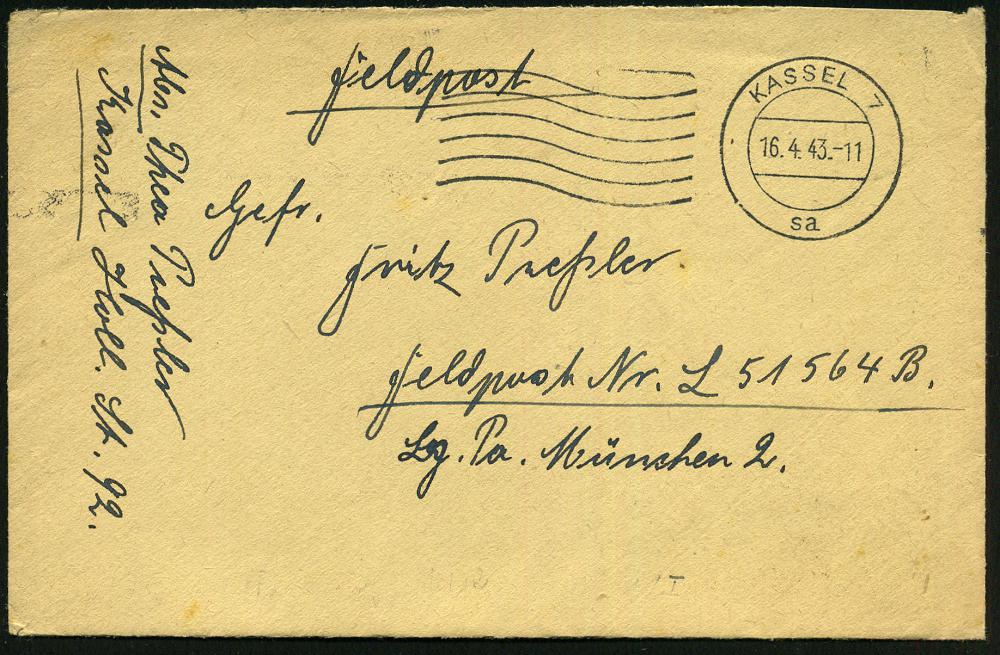 Feldpost
KASSEL 7
16.4.43.-11
sa
Gefr.
Fritz Preßler
Feldpost Nr. L 51564 B.
Lg. Pa. München 2.
Abs. Thea Preßler
Kassel Holl. St. 92.